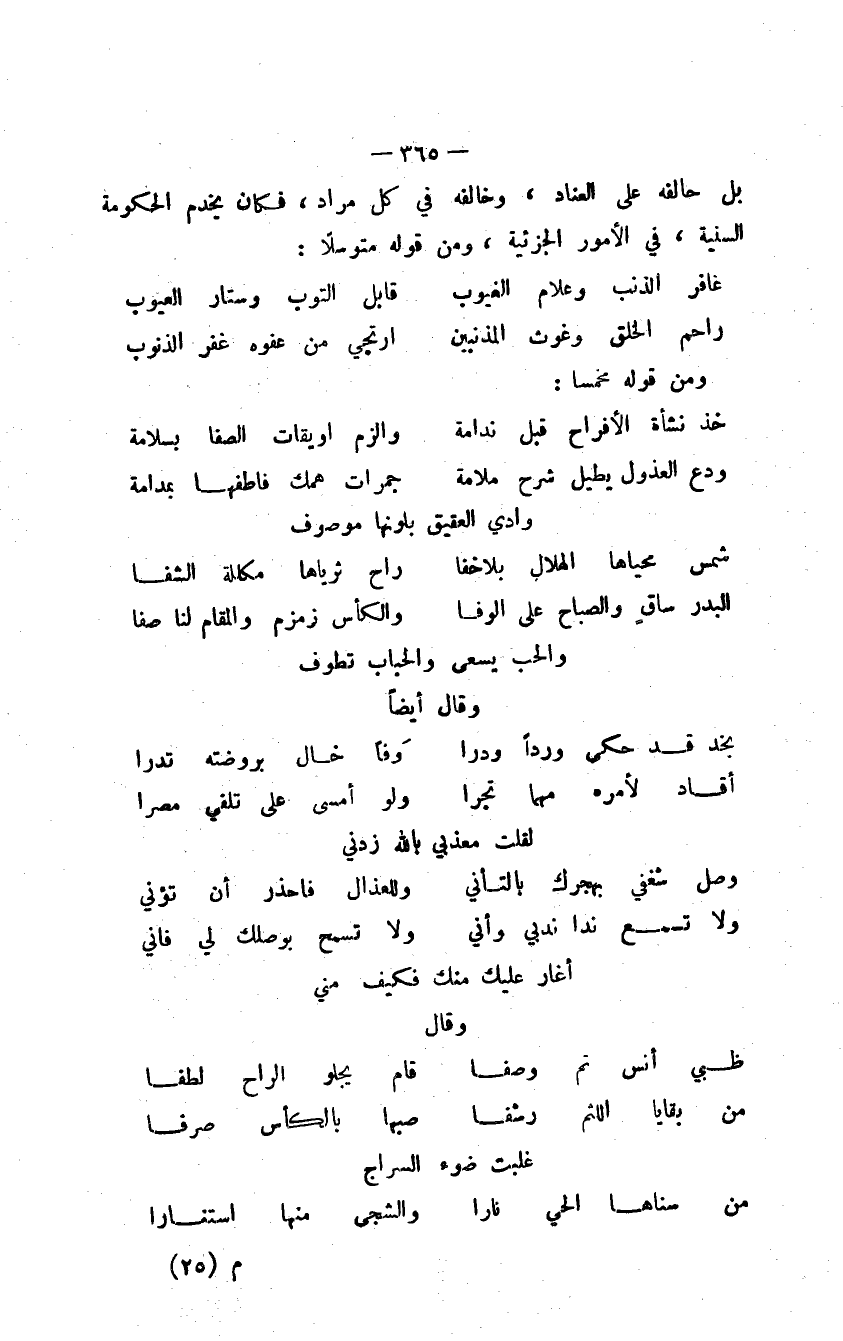 — ٣٦٥ —
بل حالفه على العناد ، وخالفه في كل مراد ، فكان يخدم الحكومة
السنية ، في الأمور الجزئية ، ومن قوله متوسلًا :
غافر الذنب وعلام الغيوب قابل التوب وستار العيوب
راحم الخلق وغوث المذنبين ارتجي من عفوه غفر الذنوب
ومن قوله مخمسا :
خذ نشأة الأفراح قبل ندامة والزم اويقات الصفا بسلامة
ودع العذول يطيل شرح ملامة جمرات همك فاطفهـا بمدامة
وادي العقيق بلونها موصوف
شمس محياها الهلال بلاخفا راح ثرياها مكللة الشفـا
البدر ساقٍ والصباح على الوفـا والكأس زمزم والمقام لنا صفا
والحب يسعى والحباب تطوف
وقال أيضاً
بخد قـد حكى ورداً ودرا وفاً خـال بروضته تدرا
أقـاد لأمره مهما تجرا ولو أمسى على تلفي مصرا
لقلت معذبي بالله زدني
وصل شغفي بهجرك بالتـأني وللعذال فاحذر أن تؤني
ولا تسمـع ندا ندبي وأني ولا تسمح بوصلك لي فاني
أغار عليك منك فكيف مني
وقال
ظـبي أنس تم وصفـا قام يجلو الراح لطفـا
من بقايا اللثم رشفـا صبها بالكأس صرفـا
غلبت ضوء السراج
من سناهـا الحي نارا والشجى منها استنـارا
م (٢٥)